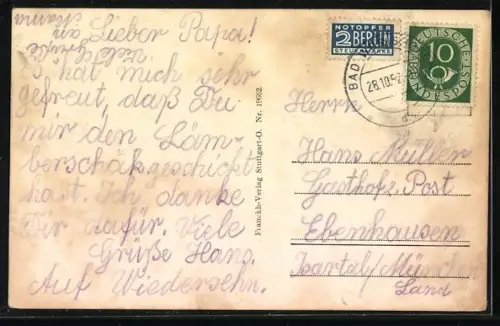 Lieber Papa!
Es hat mich sehr
gefreut, daß Du
mir den Läm-
berschäk geschickt
hast. Ich danke
Dir dafür. Viele
Grüße Hans.
Auf Wiedersehn.
Viele Grüße
an Mama
Franckh-Verlag Stuttgart-O. Nr. 19992.
NOTOPFER
2 BERLIN
STEUERMARKE
DEUTSCHE
10
BUNDESPOST
BAD
28.10.52
Herrn
Hans Müller
Gasthof Post
Ebenhausen
Isartal/München
Land